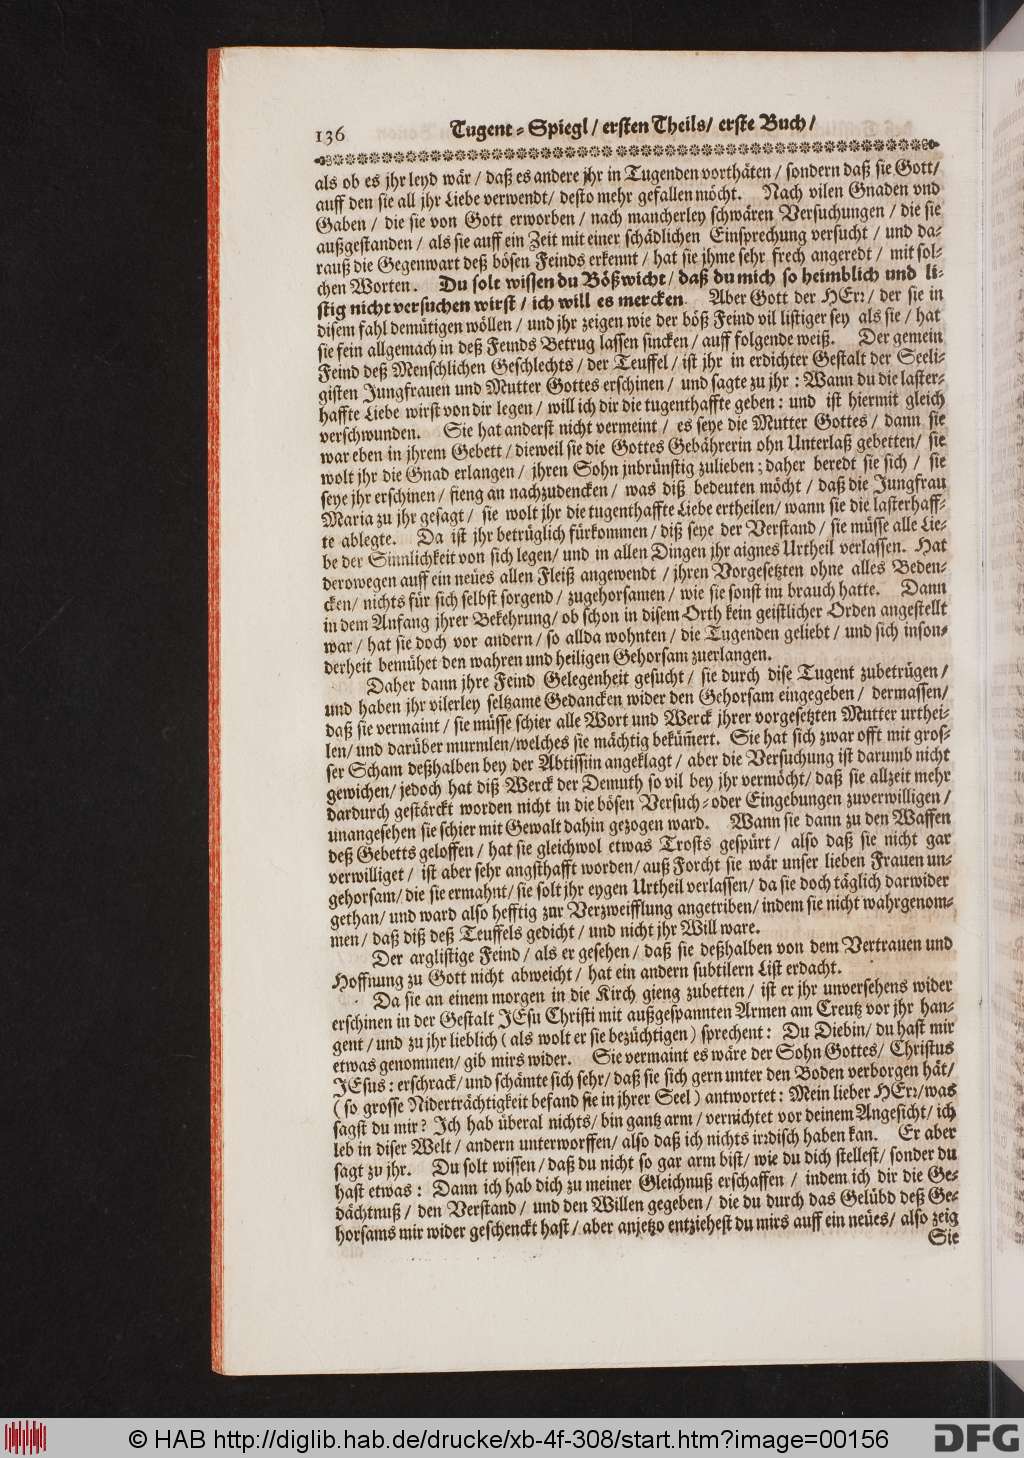 136
Tugent-Spiegl / ersten Theils / erste Buch /
als ob es jhr leyd wär / daß es andere jhr in Tugenden vorthäten / sondern daß sie Gott /
auff den sie all jhr Liebe verwendt / desto mehr gefallen möcht. Nach vilen Gnaden vnd
Gaben / die sie von Gott erworben / nach mancherley schwären Versuchungen / die sie
außgestanden / als sie auff ein Zeit mit einer schädlichen Einsprechung versucht / und da-
rauß die Gegenwart deß bösen Feinds erkennt / hat sie jhme sehr frech angeredt / mit sol-
chen Worten. Du solt wissen du Bößwicht / daß du mich so heimblich und li-
stig nicht versuchen wirst / ich will es mercken. Aber Gott der HErr / der sie in
disem fahl demütigen wöllen / und jhr zeigen wie der böß Feind vil listiger sey als sie / hat
sie fein allgemach in deß Feinds Betrug lassen sincken / auff folgende weiß. Der gemein
Feind deß Menschlichen Geschlechts / der Teuffel / ist jhr in erdichter Gestalt der Seeli-
gisten Jungfrauen und Mutter Gottes erschinen / und sagte zu jhr : Wann du die laster-
haffte Liebe wirst von dir legen / will ich dir die tugenthaffte geben : und ist hiermit gleich
verschwunden. Sie hat anderst nicht vermeint / es seye die Mutter Gottes / dann sie
war eben in jhrem Gebett / dieweil sie die Gottes Gebährerin ohn Unterlaß gebetten / sie
wolt jhr die Gnad erlangen / jhren Sohn jnbrünstig zulieben ; daher beredt sie sich / sie
seye jhr erschinen / fieng an nachzudencken / was diß bedeuten möcht / daß die Jungfrau
Maria zu jhr gesagt / sie wolt jhr die tugenthaffte Liebe ertheilen / wann sie die lasterhaff-
te ablegte. Da ist jhr betrüglich fürkommen / diß seye der Verstand / sie müsse alle Lie-
be der Sinnlichkeit von sich legen / und in allen Dingen jhr aignes Urtheil verlassen. Hat
derowegen auff ein neües allen Fleiß angewendt / jhren Vorgesetzten ohne alles Beden-
cken / nichts für sich selbst sorgend / zugehorsamen / wie sie sonst im brauch hatte. Dann
in dem Anfang jhrer Bekehrung / ob schon in disem Orth kein geistlicher Orden angestellt
war / hat sie doch vor andern / so allda wohnten / die Tugenden geliebt / und sich inson-
derheit bemühet den wahren und heiligen Gehorsam zuerlangen.
Daher dann jhre Feind Gelegenheit gesucht / sie durch dise Tugent zubetrügen /
und haben jhr vilerley seltzame Gedancken wider den Gehorsam eingegeben / dermassen /
daß sie vermaint / sie müsse schier alle Wort und Werck jhrer vorgesetzten Mutter urthei-
len / und darüber murmlen / welches sie mächtig bekūmert. Sie hat sich zwar offt mit gros-
ser Scham deßhalben bey der Abtissiin angeklagt / aber die Versuchung ist darumb nicht
gewichen / jedoch hat diß Werck der Demuth so vil bey jhr vermöcht / daß sie allzeit mehr
dardurch gestärckt worden nicht in die bösen Versuch- oder Eingebungen zuverwilligen /
unangesehen sie schier mit Gewalt dahin gezogen ward. Wann sie dann zu den Waffen
deß Gebetts geloffen / hat sie gleichwol etwas Trosts gespürt / also daß sie nicht gar
verwilliget / ist aber sehr angsthafft worden / auß Forcht sie wär unser lieben Frauen un-
gehorsam / die sie ermahnt / sie solt jhr eygen Urtheil verlassen / da sie doch täglich darwider
gethan / und ward also hefftig zur Verzweifflung angetriben / indem sie nicht wahrgenom-
men / daß diß deß Teuffels gedicht / und nicht jhr Will ware.
Der arglistige Feind / als er gesehen / daß sie deßhalben von dem Vertrauen und
Hoffnung zu Gott nicht abweicht / hat ein andern subtilern List erdacht.
Da sie an einem morgen in die Kirch gieng zubetten / ist er jhr unversehens wider
erschinen in der Gestalt JEsu Christi mit außgespannten Armen am Creutz vor jhr han-
gent / und zu jhr lieblich ( als wolt er sie bezüchtigen ) sprechent : Du Diebin / du hast mir
etwas genommen / gib mirs wider. Sie vermaint es wäre der Sohn Gottes / Christus
JEsus : erschrack / und schämte sich sehr / daß sie sich gern unter den Boden verborgen hät /
( so grosse Niderträchtigkeit befand sie in jhrer Seel ) antwortet : Mein lieber HErr / was
sagst du mir ? Ich hab überal nichts / bin gantz arm / vernichtet vor deinem Angesicht / ich
leb in diser Welt / andern unterworffen / also daß ich nichts irrdisch haben kan. Er aber
sagt zu jhr. Du solt wissen / daß du nicht so gar arm bist / wie du dich stellest / sonder du
hast etwas : Dann ich hab dich zu meiner Gleichnuß erschaffen / indem ich dir die Ge-
dächtnuß / den Verstand / und den Willen gegeben / die du durch das Gelübd deß Ge-
horsams mir wider geschenckt hast / aber anjetzo entziehest du mirs auff ein neües / also zeig
Sie
© HAB http://diglib.hab.de/drucke/xb-4f-308/start.htm?image=00156
DFG